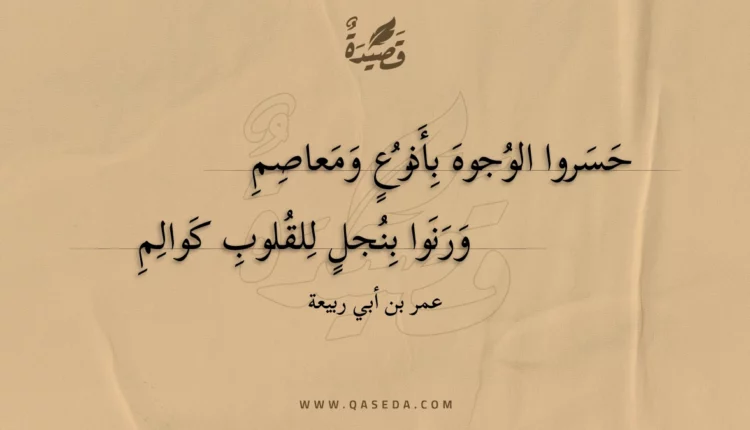 قَصِيدَةٌ
حَسَروا الوُجوهَ بِأَذوُعٍ وَمَعاصِمِ
وَرَنَوا بِنُجلٍ لِلقُلوبِ كَوالِمِ
عمر بن أبي ربيعة
WWW.QASEDA.COM